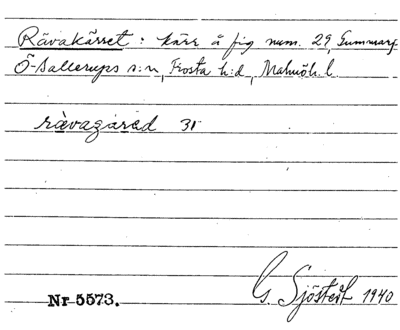 Rävakärret: kärr å fig num. 29, Gummarp
Ö-Sallerups s:n, Frosta h:d, Malmöh. l.
31
G. Sjöstedt 1940
Nr 5573.